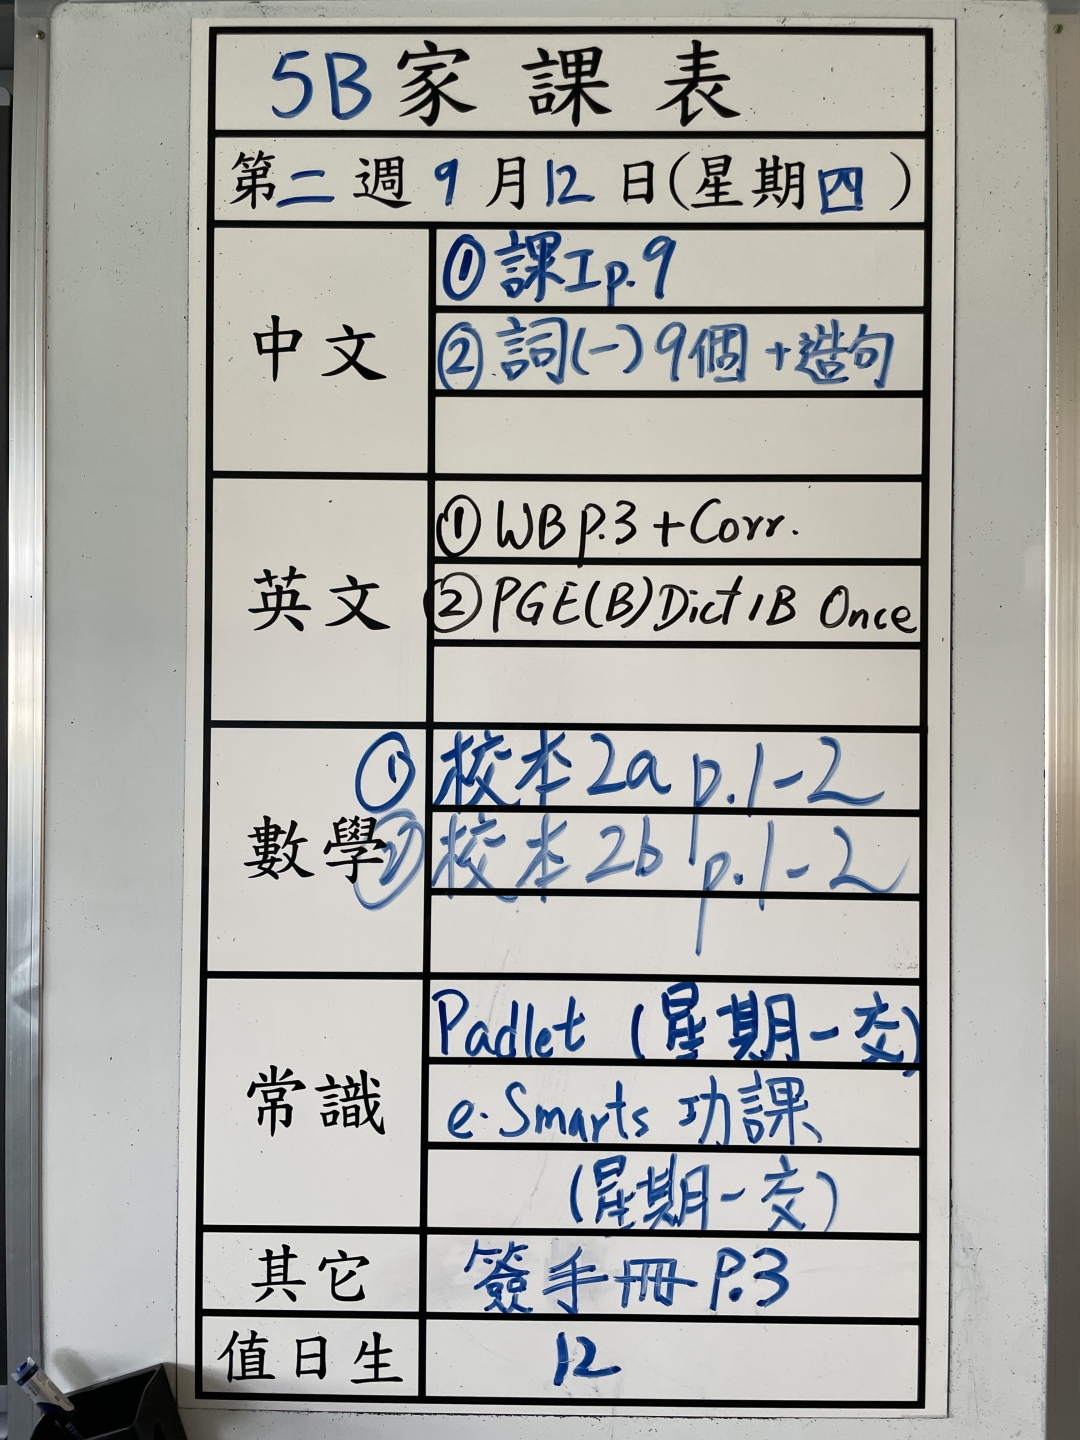 5B家課表
第二週9月12日(星期四)
中文
①課工p.9
②詞(一)9個+造句
英文
①WB P.3 + Corr.
②PGE(B)Dict1B Once
數學
①校本2a p.1-2
②校本2b p.1-2
常識
Padlet (星期一交)
e-Smarts 功課
(星期一交)
其它
簽手冊P.3
值日生
12